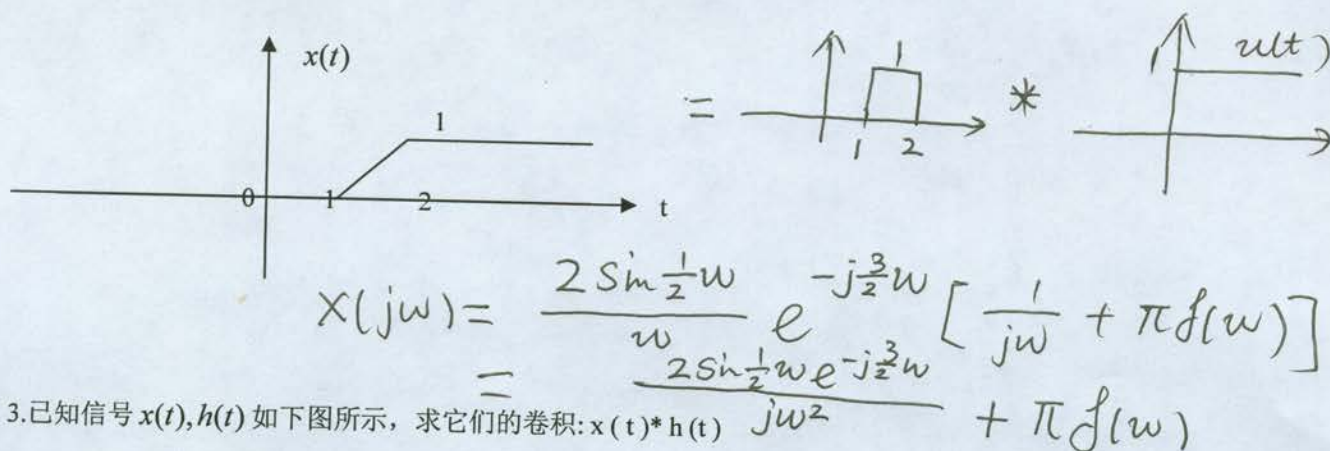 x(t)
1
0 1 2 t
= 1 1 2 * 1 u(t)
X(jw) = \frac{2 sin \frac{1}{2} w}{w} e^{-j\frac{3}{2}w} [\frac{1}{jw} + πδ(w)]
= \frac{2 sin \frac{1}{2} w e^{-j\frac{3}{2}w}}{jw^2} + πδ(w)
3.已知信号 x(t), h(t) 如下图所示，求它们的卷积: x ( t )* h (t)